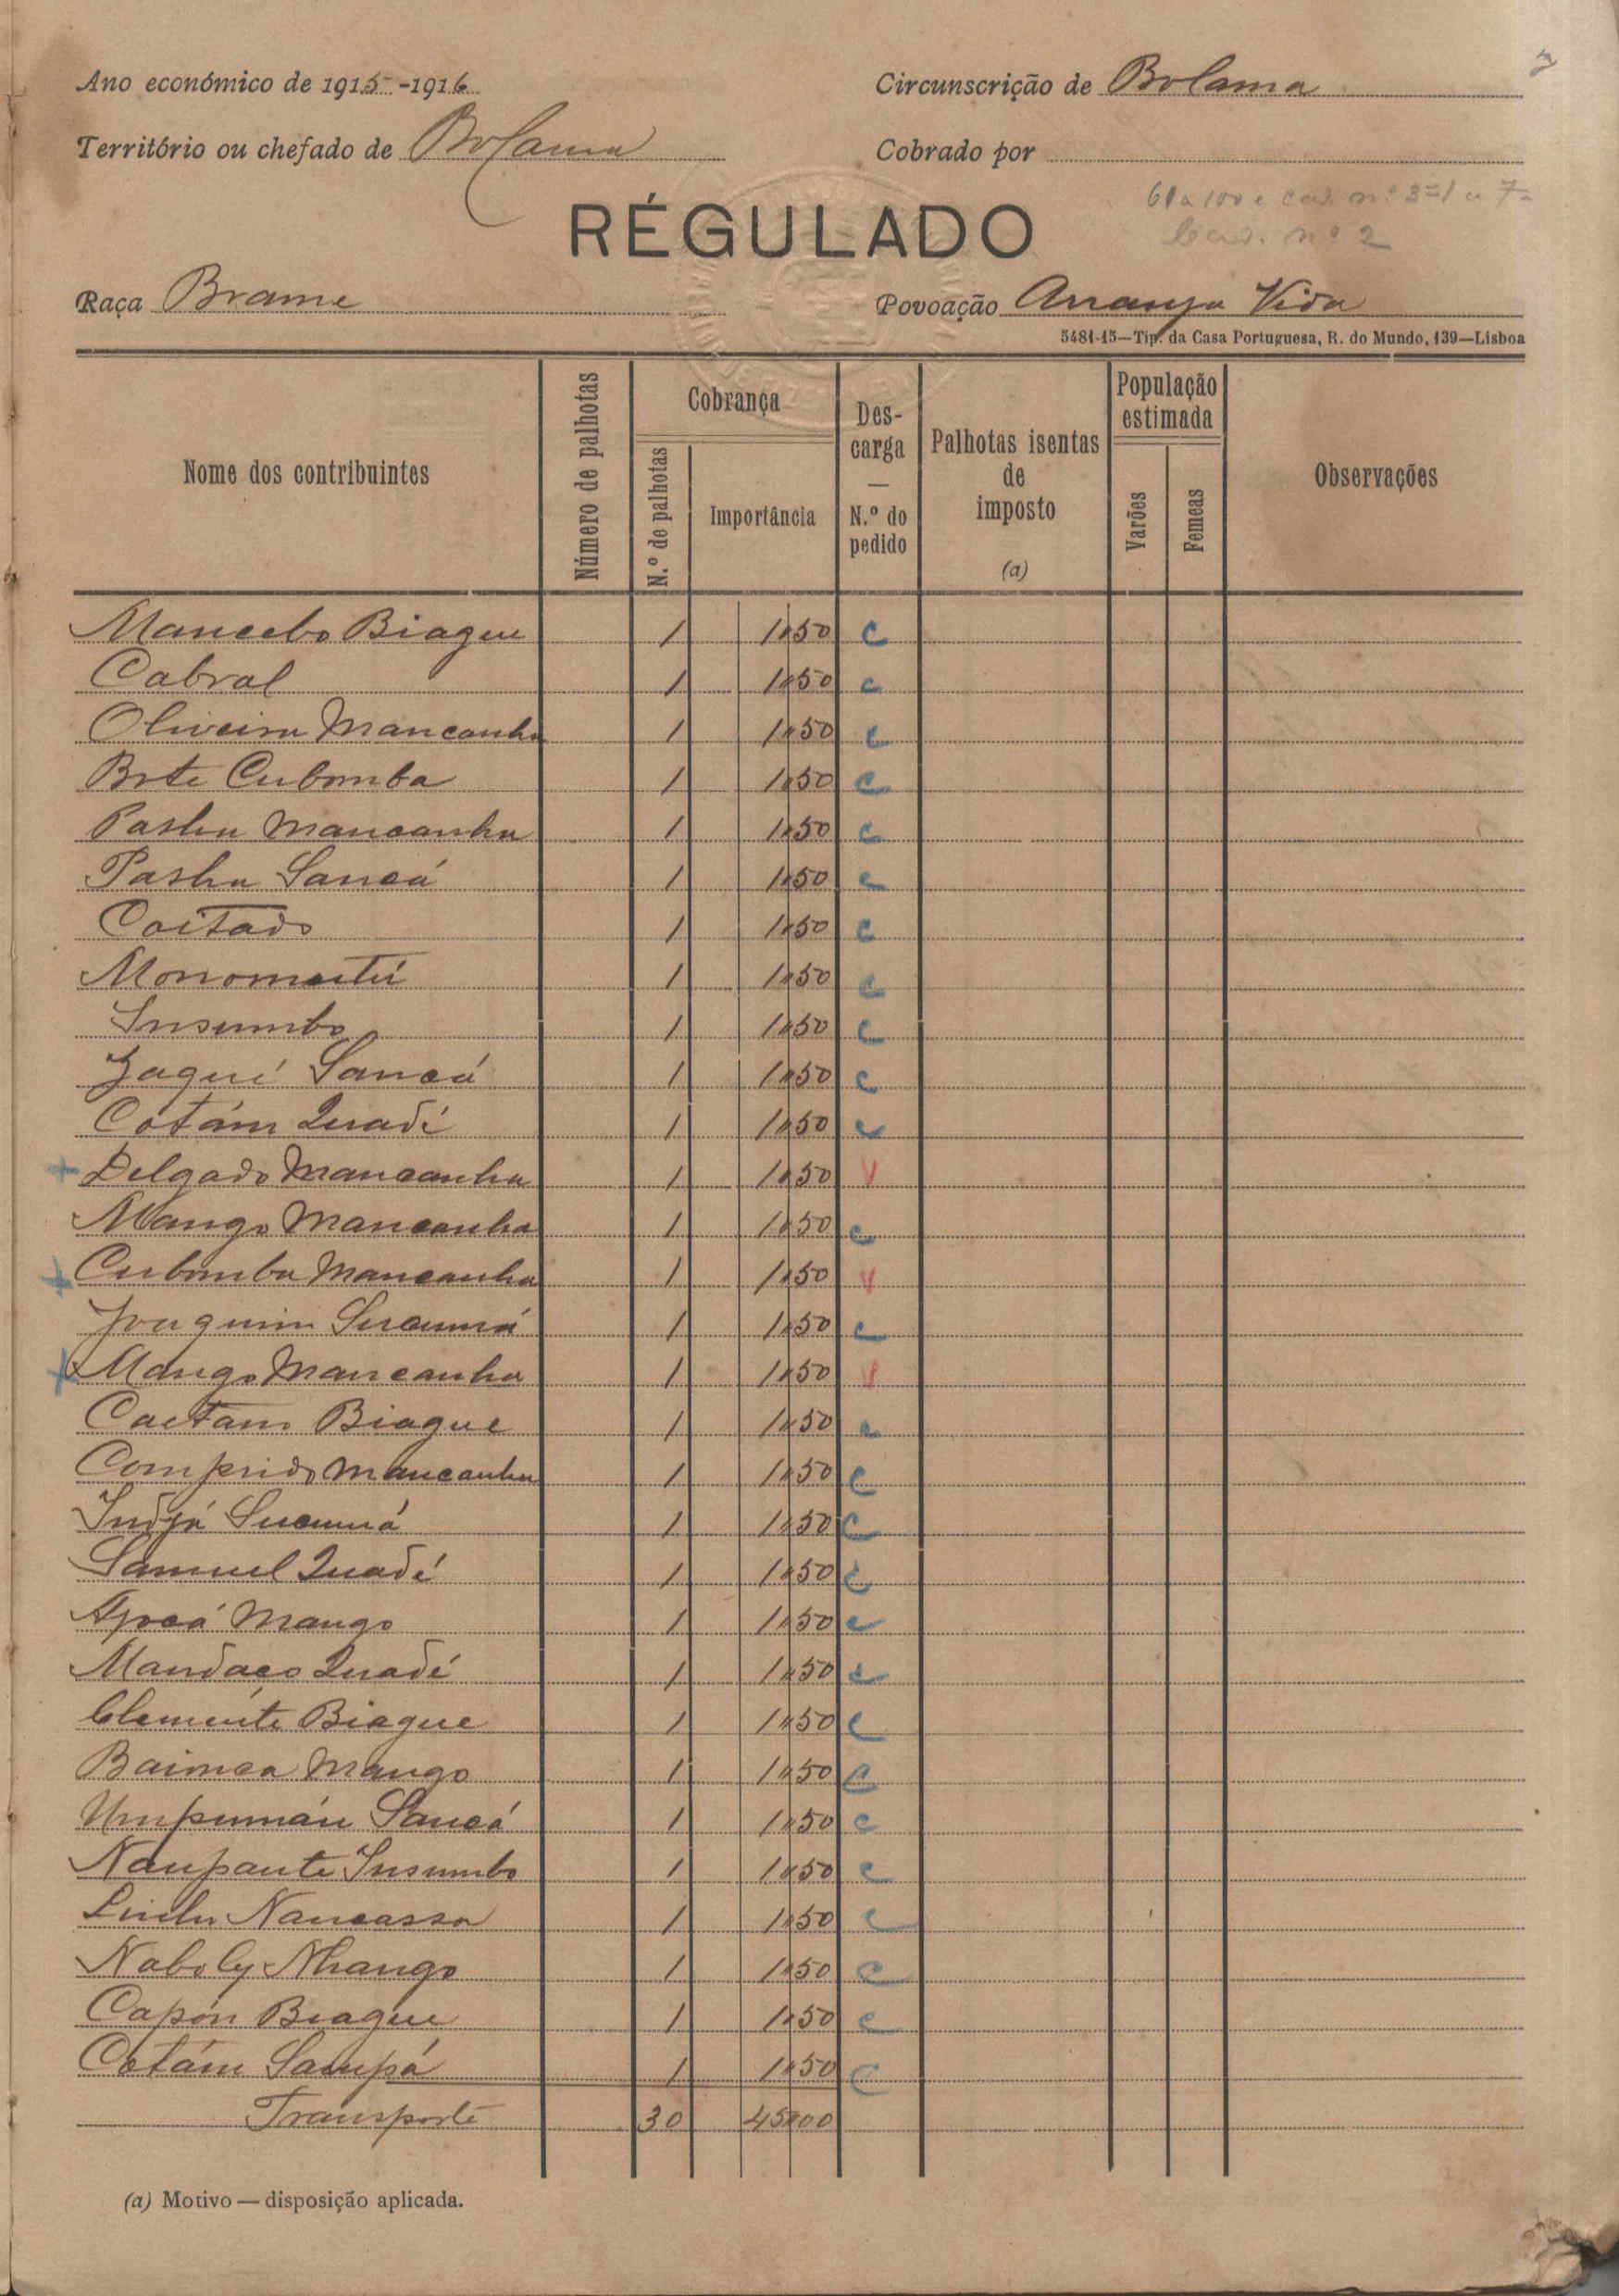 Ano económico de 1915-1916
Circunscrição de Bolama
Território ou chefado de Bolama
Cobrado por
61 a 100 e cad. nº 3=1 a 7-
Cad. nº 2
RÉGULADO
Raça Brame
Povoação Arranja Vida
5481-15—Tip. da Casa Portuguesa, R. do Mundo, 139—Lisboa
Nome dos contribuintes
Número de palhotas
Cobrança
N.º de palhotas
Importância
Des-
carga
—
N.º do
pedido
Palhotas isentas
de
imposto
(a)
População
estimada
Varões
Femeas
Observações
Mancebo Biague 1 1$50 C
Cabral 1 1$50 C
Oliveira Mancanha 1 1$50 C
Bote Cubomba 1 1$50 C
Mancanha 1 1$50 C
Sancá 1 1$50 C
Coitado 1 1$50 C
1 1$50 C
Insumbo 1 1$50 C
Jaqui Sancá 1 1$50 C
Cotám Quadé 1 1$50 C
+ Delgado Mancanha 1 1$50 V
Mango Mancanha 1 1$50 C
+ Cubomba Mancanha 1 1$50 V
Joaquim Sucumá 1 1$50 C
+ Mango Mancanha 1 1$50 V
Caetano Biague 1 1$50 C
Comprido Mancanha 1 1$50 C
Indjá Sucumá 1 1$50 C
Samuel Quadé 1 1$50 C
Mango 1 1$50 C
Mandaco Quadé 1 1$50 C
Clemente Biague 1 1$50 C
Baimca Mango 1 1$50 C
Umpumán Sancá 1 1$50 C
Naupante Insumbo 1 1$50 C
Nancassa 1 1$50 C
Naboly Nhango 1 1$50 C
Capón Biague 1 1$50 C
Cotám Sampá 1 1$50 C
Transporte 30 45$00
(a) Motivo — disposição aplicada.